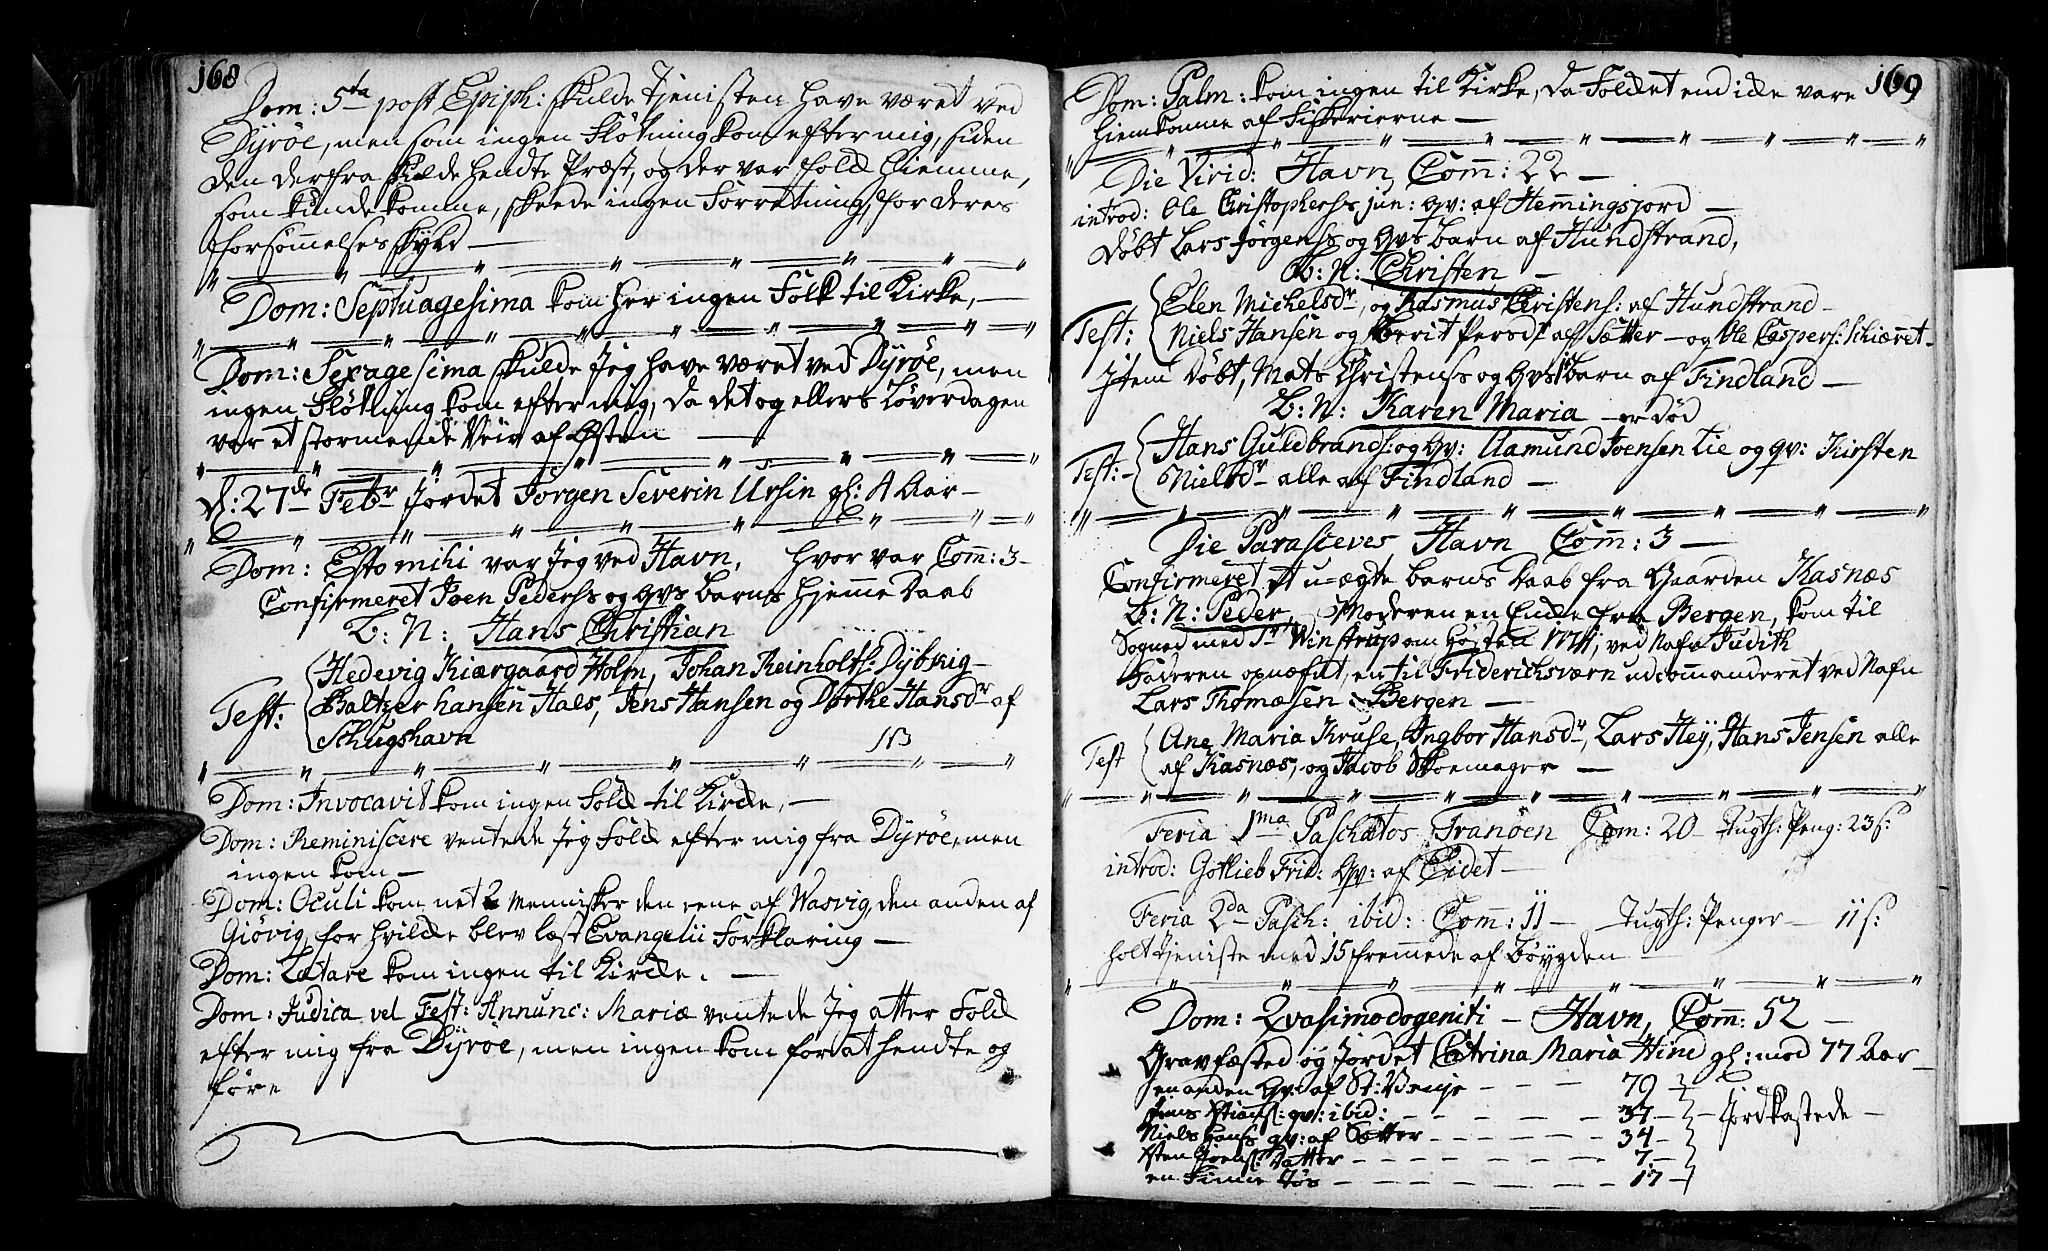 168
Dom: 5ta post Epiph: skulde Tjenisten have været ved
Dyrøe, men som ingen Fløtning kom efter mig, siden
den derfra skulde hendte Præst, og der var Folck hiemme,
som kunde komme, skeede ingen Forretning, for deres
forsømmelses skyld —
Dom: Septuagesima kom her ingen Folk til Kirke, —
Dom: Sexagesima skulde Jeg have været ved Dyrøe, men
ingen Fløtning kom efter mig, da det og ellers Løverdagen
var et stormende Veir af Østen —
d: 27de Febr Jordet Jørgen Severin Ursin gl: 4 Aar —
Dom: Esto mihi var Jeg ved Havn, hvor var Com̄: 3 —
Confirmeret Joen Pederss og qvs barns hjemme Daab
b: N: Hans Christian
Test: Hedevig Kiærgaard Holm, Johan Reinholts: Dybvig —
Baltzer hansen Hals, Jens Hansen og Dorthe Hansdr af
Schugshavn
NB
Dom: Invocavit kom ingen Folck til Kircke, —
Dom: Reminiscere ventede Jeg Folck efter mig fra Dyrøe, men
ingen kom —
Dom: Oculi kom net 2 Mennisker den eene af Wasvig, den anden af
Giövig, for hvilcke blev læst Evangelii Forklaring —
Dom: Lætare kom ingen til Kircke. —
Dom: Judica vel Fest: Annunc: Mariæ ventede Jeg atter Folck
efter mig fra Dyrøe, men ingen kom for at hendte og
føre
169
Dom: Palm: kom ingen til Kirke, da Folcket end icke vare
hiemkomne af Fiskerierne —
Die Virid: Havn, Com̄: 22 —
introd: Ole Christopherss jun: qv: af Hemmingsjord —
Døbt Lars Jørgenss og qvs barn af Hundstrand,
b: N: Christen —
Test: Elen Michelsdr, og Rasmus Christens: af Hundstrand —
Niels Hansen og Berit Persdr af Sætter — og Ole Caspers: Schiæret —
Item Døbt, Mats Christenss og qvs barn af Findland —
b: N: Karen Maria — er død
Test: — Hans Guldbrands: og qv: Aamund Joensen Lie og qv: Kirsten
Nielsdr alle af Findland —
Die Parasceves, Havn Com̄: 3 —
Confirmeret et u-ægte barns Daab fra Gaarden Kasnæs
b: N: Peder, Moderen en Encke fra Bergen, kom til
Sognet med Sr Winstrup om Høsten, ved Nafn Judith
Faderen opnæfnt, en til Friderichsværn udcommanderet ved Nafn
Lars Thomæsen Bergen —
Test Ane Maria Kruse, Ingbor Hansdr, Lars Hey, Hans Jensen alle
af Kasnæs, og Jacob Skoemager —
Feria 1ma Paschatos Tranöen Com: 20 — Tugth: Peng: 23 s:
introd: Gotlieb Frid: qv: af Eidet —
Feria 2da Pasch: ibid: Com̄: 11 — Tugth: Penger — 11 s:
holt tjeniste med 15 fremmede af Bøygden —
Dom: Qvasimodogeniti — Havn, Com̄: 52 —
Gravfæsted og Jordet Catrina Maria Hind gl: mod 77 Aar —
en anden qv: af St: — — — 79
qv: ibid: — — — 37 — Jordkastede —
Niels Hanss qv: af Sætter — — — 34 —
Datter — — — 7 —
en Finne — — — 17 —